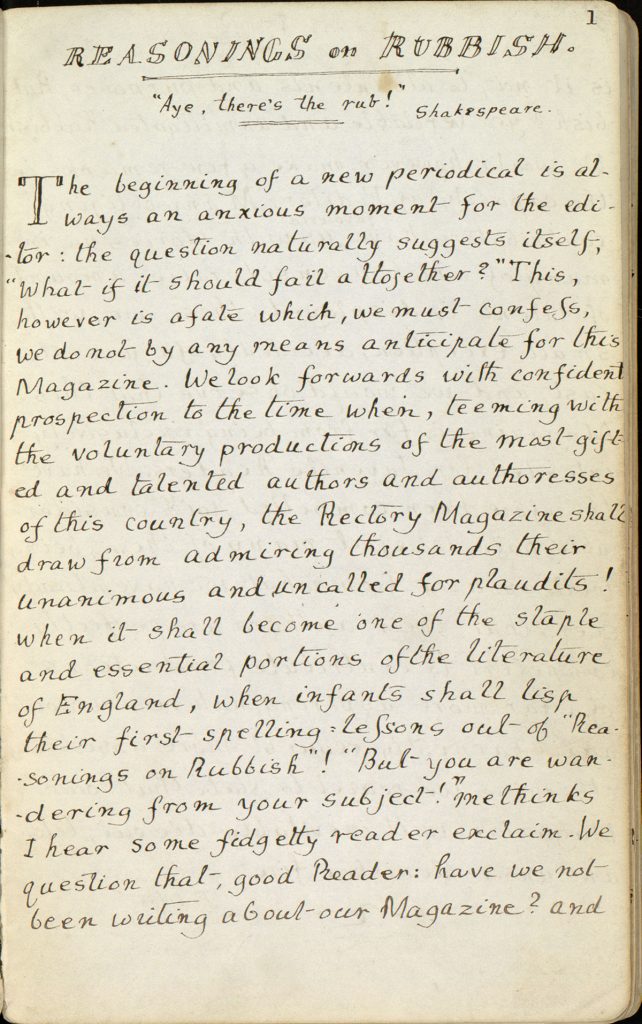 1
REASONINGS on RUBBISH.
"Aye, there's the rub!" Shakespeare.
The beginning of a new periodical is al-
ways an anxious moment for the edi-
-tor: the question naturally suggests itself,
"What if it should fail altogether?" This,
however is a fate which, we must confeſs,
we do not by any means anticipate for this
Magazine. We look forwards with confident
prospection to the time when, teeming with
the voluntary productions of the most gift-
ed and talented authors and authoresses
of this country, the Rectory Magazine shall
draw from admiring thousands their
unanimous and uncalled for plaudits!
when it shall become one of the staple
and essential portions of the literature
of England, when infants shall lisp
their first spelling=leſsons out of "Rea-
-sonings on Rubbish"! "But you are wan-
-dering from your subject!" methinks
I hear some fidgetty reader exclaim. We
question that, good Reader: have we not
been writing about our Magazine? and